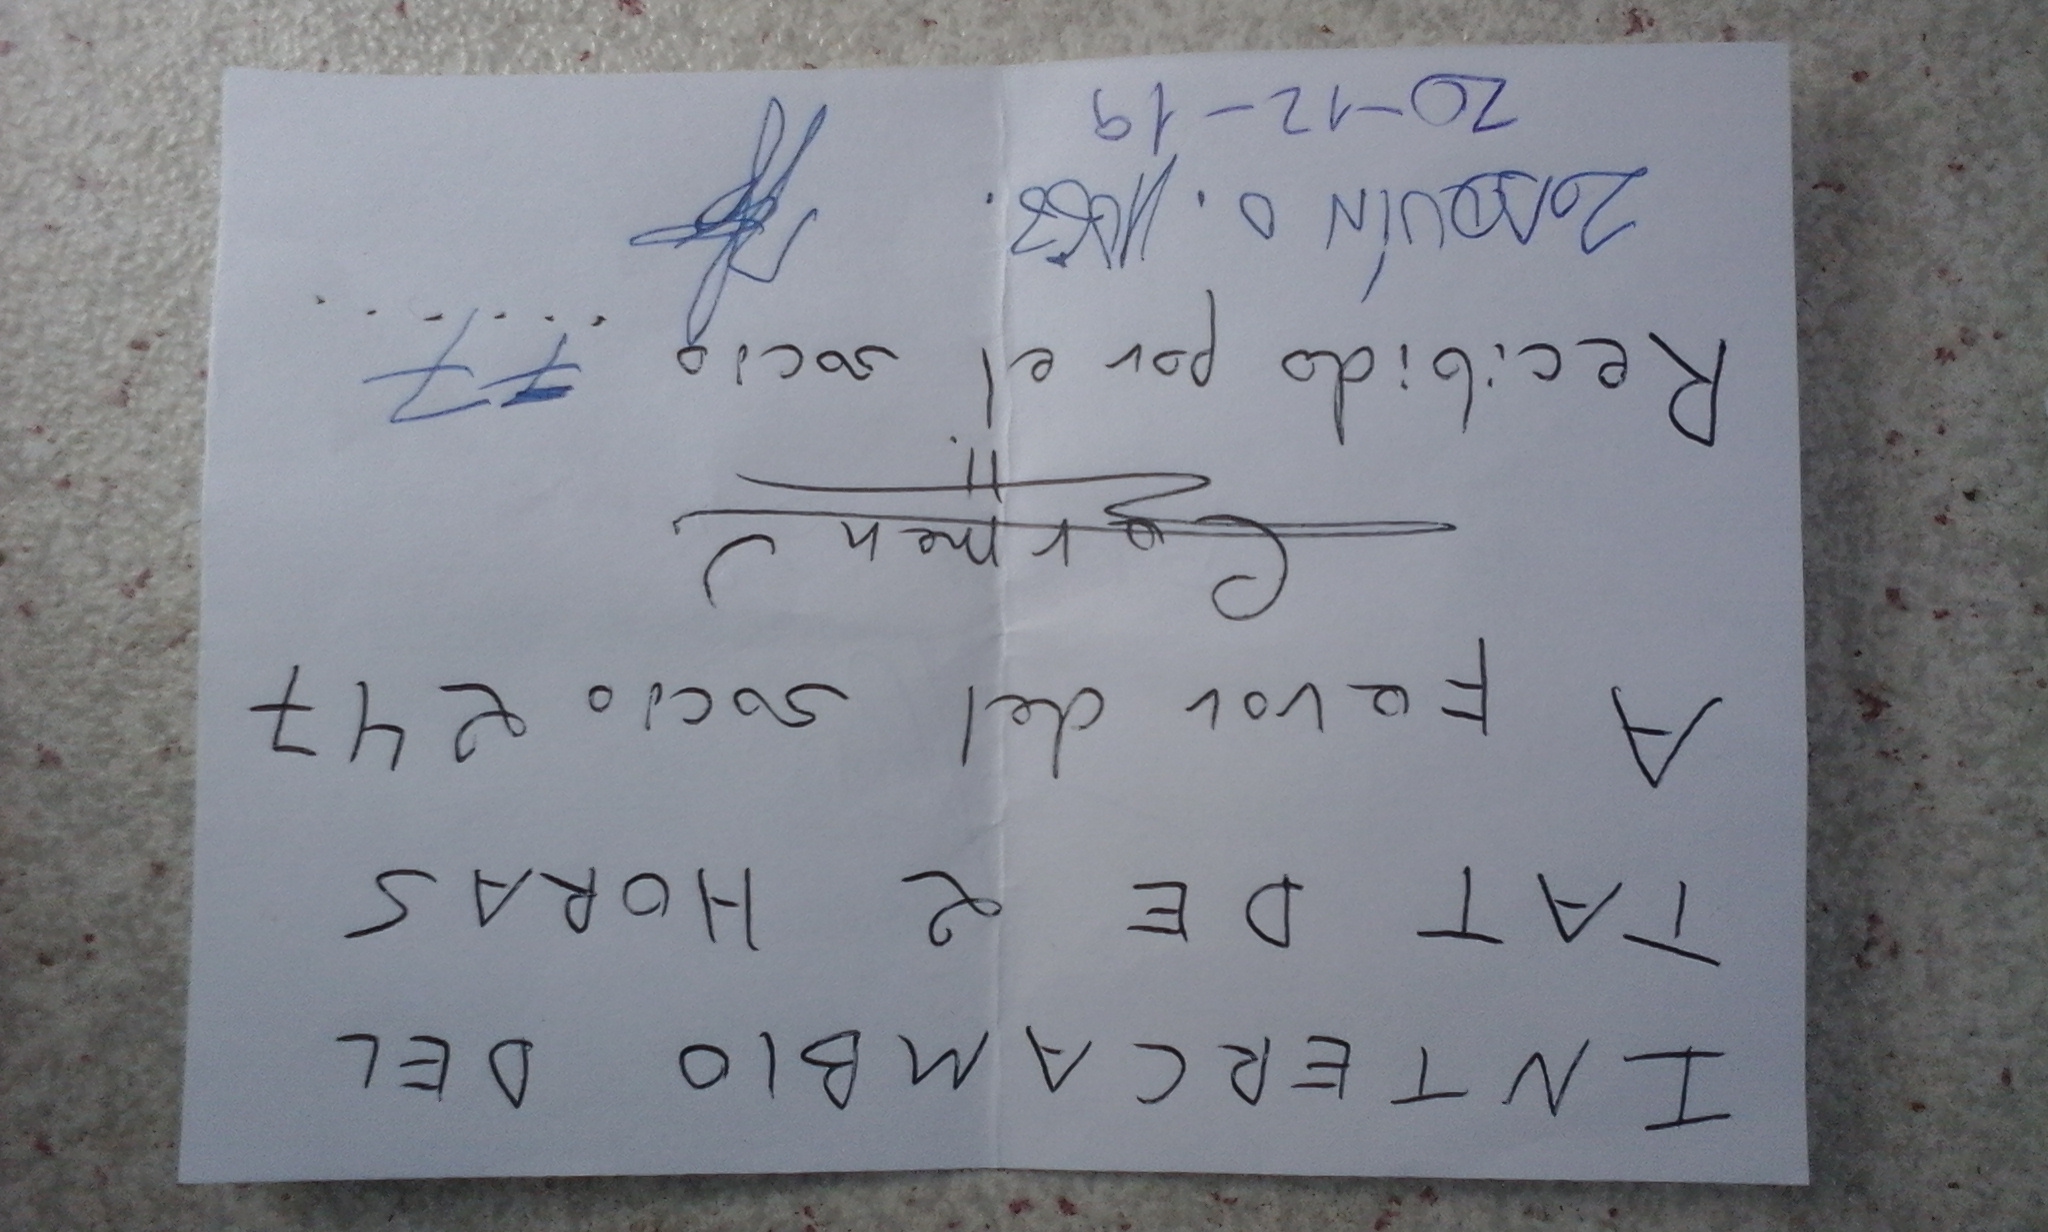 INTERCAMBIO DEL
TAT DE 2 HORAS
A Favor del socio 247
Carmen J.
Recibido por el socio 77
JOAQUÍN O.
20-12-19